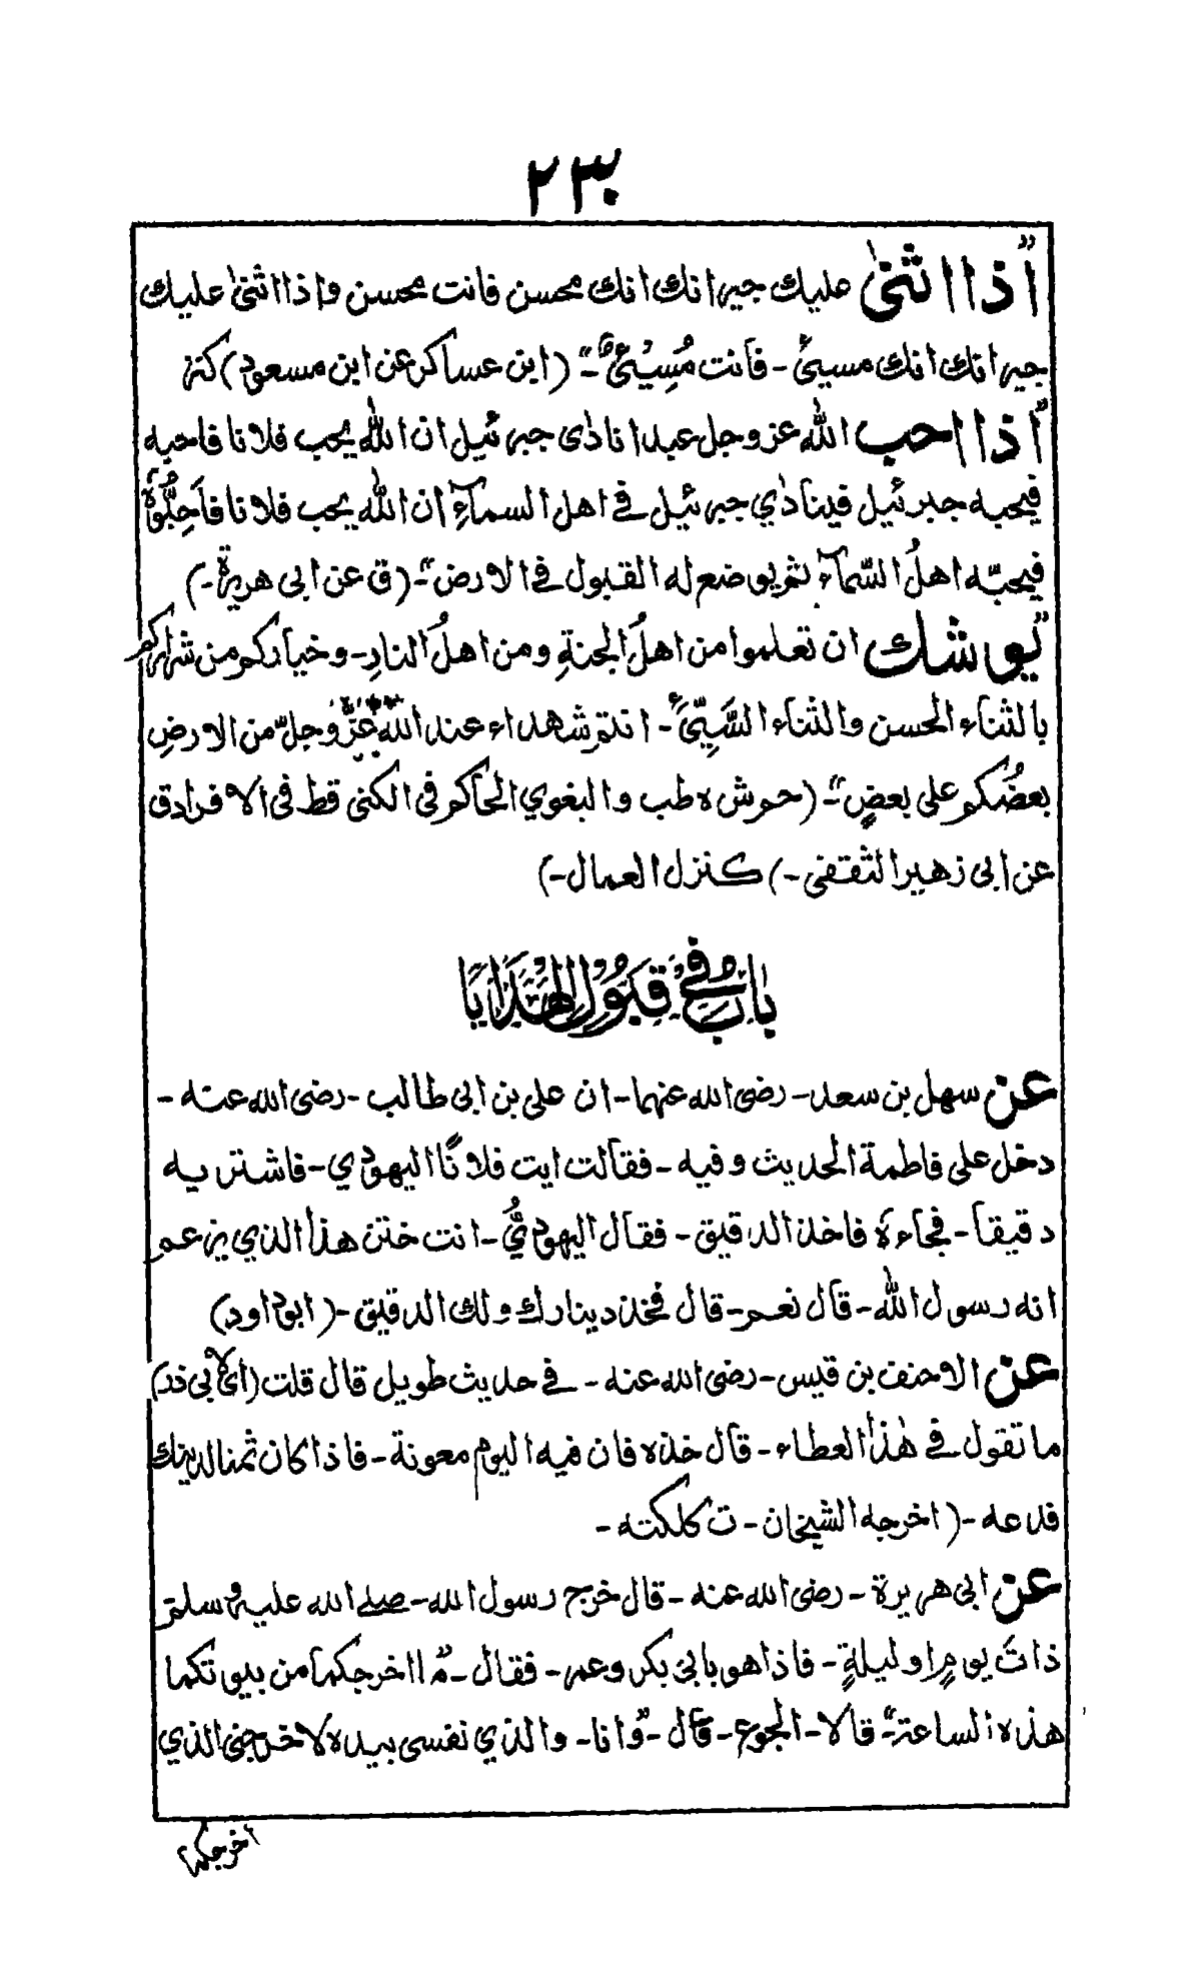 ٢٣٠
"اذا اثنىٰ عليك جيرانك انك محسن فانت محسن واذا اثنىٰ عليك
جيرانك انك مسيئ - فانت مُسِيْئٌ" - (ابن عساكر عن ابن مسعود) كنز
"اذا احب الله عزوجل عبدا نادٰى جبرئيل ان الله يحب فلانا فاحبه
فيحبه جبرئيل فينادي جبرئيل في اهل السمآءِ ان الله يحب فلانا فاَحِبُّوْهُ
فيحبّه اهلُ السّمآء ثم يوضع له القبول في الارض" - (ق عن ابى هريرة -)
"يوشك ان تعلموا من اهلُ الجنةِ ومن اهلُ النارِ - وخياركم من شراركم
بالثناء الحسن والثناء السَّيِّئَ - انتم شهداء عند اللهِ عَزَّ وجلّ من الارضِ
بعضُكم على بعضٍ" - (حم ش ه طب والبغوي الحاكم فى الكنى قط فى الافراد ق
عن ابى زهير الثقفى -) كنزل العمال -)
بابٌ في قَبُوْلِ الهَدَايَا
عن سهل بن سعد - رضى الله عنهما - ان على بن ابى طالب - رضى الله عنه -
دخل على فاطمة الحديث وفيه - فقالت ايت فلانًا اليهودي - فاشتر به
دقيقا - فجاءه فاخذ الدقيق - فقال اليهوديُّ - انت ختن هذا الذي يزعم
انه رسول الله - قال نعم - قال فخذ دينارك ولك الدقيق - (ابوداود)
عن الاحنف بن قيس - رضى الله عنه - في حديث طويل قال قلت (اى لابى ذر)
ما تقول في هٰذا العطاء - قال خذه فان فيه اليوم معونة - فاذا كان ثمنا لدينك
فدعه - (اخرجه الشيخان - ت كلكته -
عن ابى هريرة - رضى الله عنه - قال خرج رسول الله - صلے الله عليه وسلم
ذاتَ يومٍ او ليلةٍ - فاذا هو بابى بكر وعمر - فقال - "ما اخرجكما من بيوتكما
هذه الساعة" - قالا - الجوع - قال - "وانا - والذي نفسى بيده لاخرجنى الذي
اخرجكما